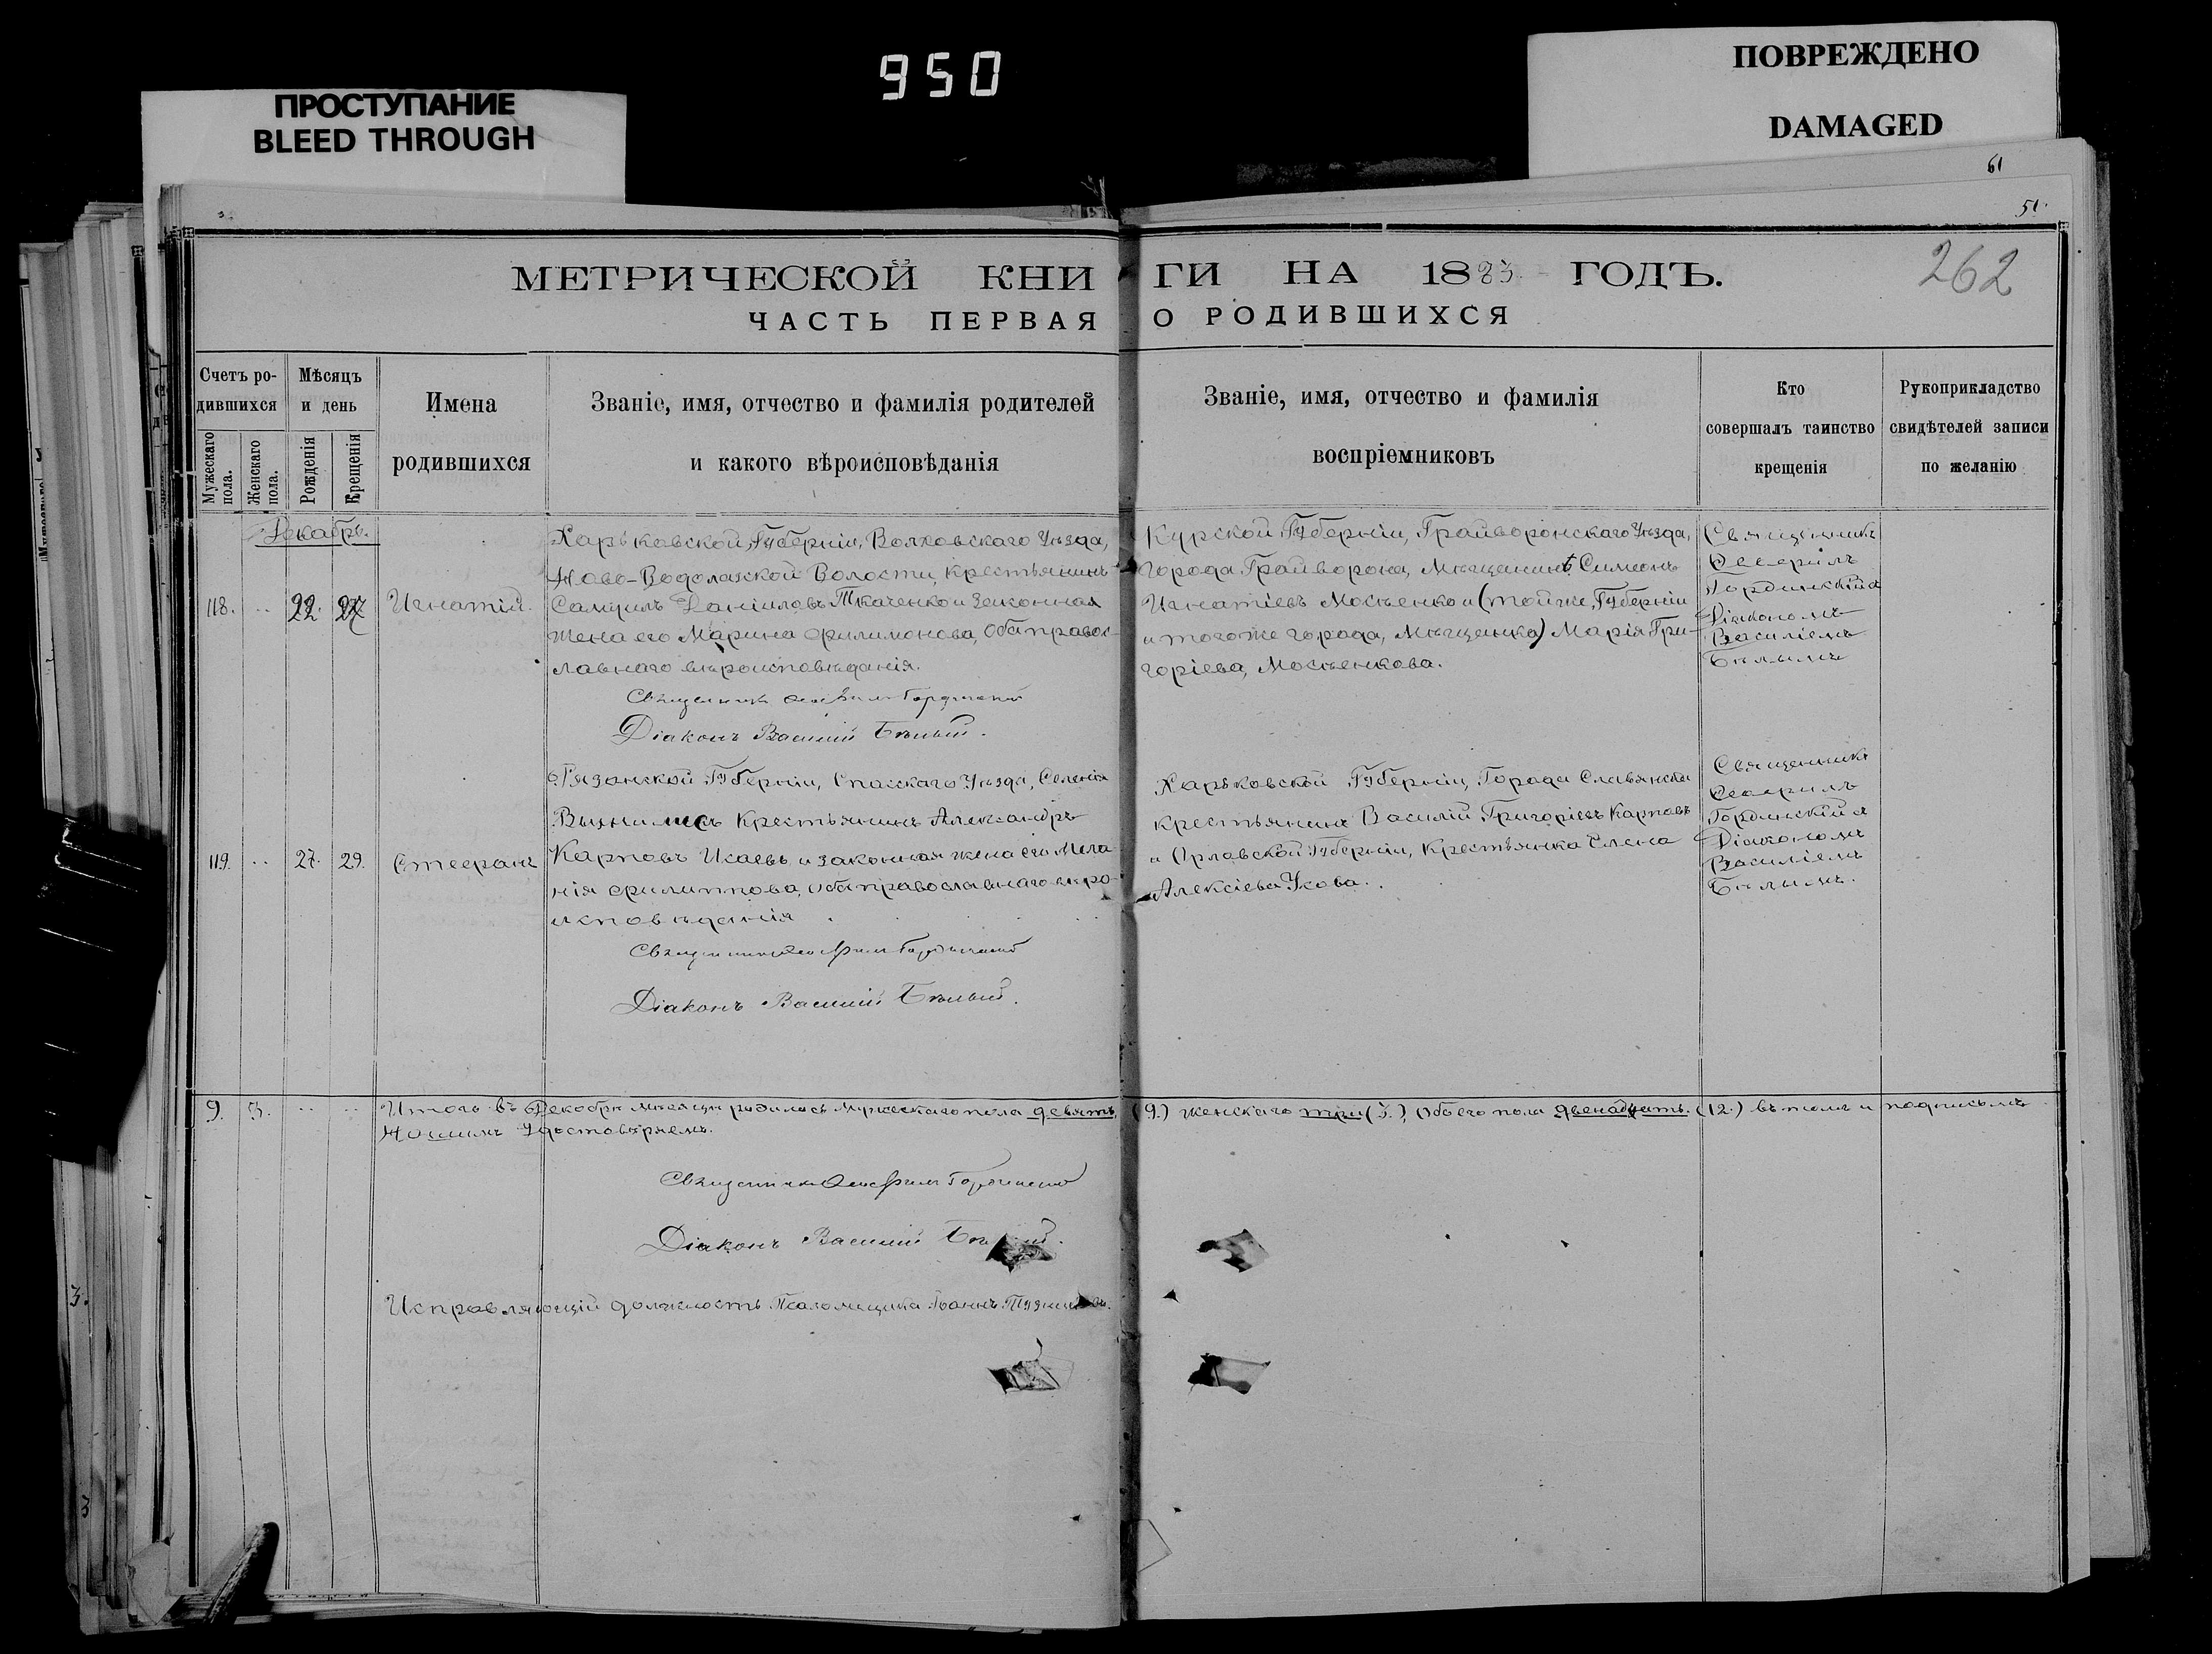 950
ПРОСТУПАНИЕ
BLEED THROUGH
ПОВРЕЖДЕНО
DAMAGED
61
51.
262
МЕТРИЧЕСКОЙ КНИГИ НА 1883 ГОДЪ.
ЧАСТЬ ПЕРВАЯ О РОДИВШИХСЯ
Счетъ ро-
дившихся
Мужескаго пола.
Женскаго пола.
Мѣсяцъ
и день
Рожденія
Крещенія
Имена
родившихся
Званіе, имя, отчество и фамилія родителей
и какого вѣроисповѣданія
Званіе, имя, отчество и фамилія
воспріемниковъ
Кто
совершалъ таинство
крещенія
Рукоприкладство
свидѣтелей записи
по желанію
Декабрь.
118. .. 22. 27 Игнатій.
Харьковской Губерніи, Волковскаго Уѣзда,
Ново-Водолажской Волости, Крестьянинъ
Самуилъ Даніиловъ Ткаченко и законная
жена его Марина Филимонова, оба правос-
лавнаго вѣроисповѣданія.
Священникъ Ѳеофилъ Гординскій
Діаконъ Василій Бѣлый.
Курской Губерніи, Грайворонскаго Уѣзда,
города Грайворона, Мѣщанинъ Симеонъ
Игнатіевъ Мосьенко и (той же Губерніи
и того же города, Мѣщанка) Марія Гри-
горіева, Мосьенкова.
Священникъ
Ѳеофилъ
Гординскій съ
Діакономъ
Василіемъ
Бѣлымъ
119. .. 27. 29. Стефанъ
Рязанской Губерніи, Спасскаго Уѣзда, Селенія
Крестьянинъ Александръ
Карповъ Исаевъ и законная жена его Мела-
нія Филиппова, оба православнаго вѣро-
исповѣданія
Священникъ Ѳеофилъ Гординскій
Діаконъ Василій Бѣлый.
Харьковской Губерніи, Города Славянска
крестьянинъ Василій Григоріевъ Карповъ
и Орловской Губерніи, Крестьянка Елена
Алексіева Ускова.
Священникъ
Ѳеофилъ
Гординскій съ
Діакономъ
Василіемъ
Бѣлымъ.
9. 3. .. .. Итого въ Декабрѣ мѣсяцѣ родилось мужескаго пола девять (9.) женскаго три (3.), обоего пола двенадцать. (12.) въ томъ и подписомъ
Нашимъ удостовѣряемъ.
Священникъ Ѳеофилъ Гординскій
Діаконъ Василій Бѣлый.
Исправляющій должность Псаломщика Іоаннъ